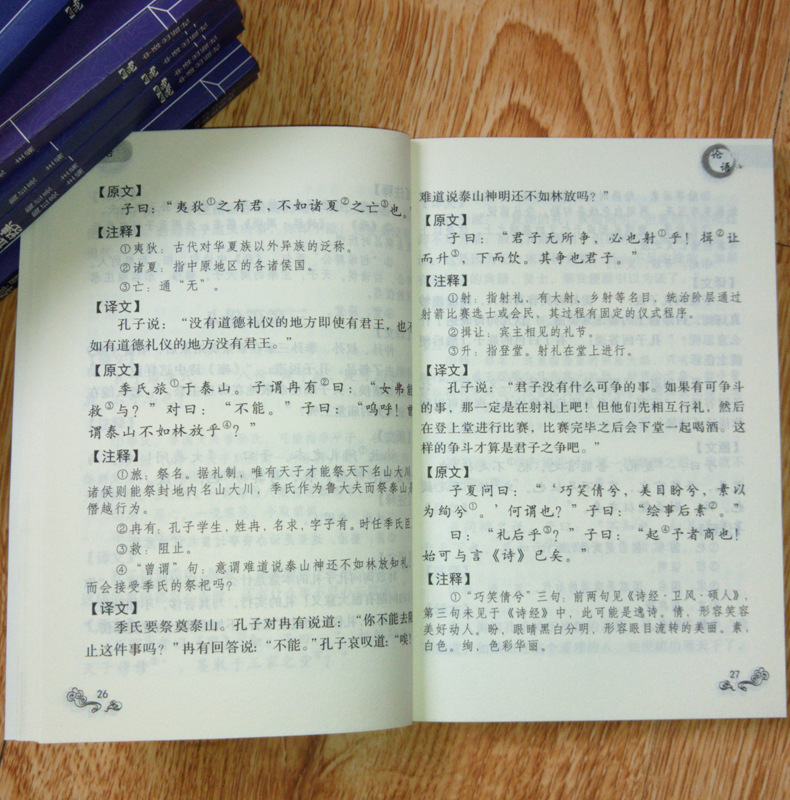 【原文】
子曰：“夷狄①之有君，不如诸夏②之亡③也。
【注释】
①夷狄：古代对华夏族以外异族的泛称。
②诸夏：指中原地区的各诸侯国。
③亡：通“无”。
【译文】
孔子说：“没有道德礼仪的地方即使有君王，也不
如有道德礼仪的地方没有君王。”
【原文】
季氏旅①于泰山。子谓冉有②曰：“女弗能
救③与？”对曰：“不能。”子曰：“呜呼！曾
谓泰山不如林放乎④？”
【注释】
①旅：祭名。据礼制，唯有天子才能祭天下名山大川，
诸侯则能祭封地内名山大川，季氏作为鲁大夫而祭泰山是
僭越行为。
②冉有：孔子学生，姓冉，名求，字子有。时任季氏臣
③救：阻止。
④“曾谓”句：意谓难道说泰山神还不如林放知礼
而会接受季氏的祭祀吗？
【译文】
季氏要祭奠泰山。孔子对冉有说道：“你不能去阻
止这件事吗？”冉有回答说：“不能。”孔子哀叹道：“唉！
26
论语
难道说泰山神明还不如林放吗？”
【原文】
子曰：“君子无所争，必也射①乎！揖②让
而升③，下而饮。其争也君子。”
【注释】
①射：指射礼，有大射、乡射等名目，统治阶层通过
射箭比赛选士或会民，其过程有固定的仪式程序。
②揖让：宾主相见的礼节。
③升：指登堂。射礼在堂上进行。
【译文】
孔子说：“君子没有什么可争的事。如果有可争斗
的事，那一定是在射礼上吧！但他们先相互行礼，然后
在登上堂进行比赛，比赛完毕之后会下堂一起喝酒。这
样的争斗才算是君子之争吧。”
【原文】
子夏问曰：“‘巧笑倩兮，美目盼兮，素以
为绚兮①。’何谓也？”子曰：“绘事后素②。”
曰：“礼后乎③？”子曰：“起④予者商也！
始可与言《诗》已矣。”
【注释】
①“巧笑倩兮”三句：前两句见《诗经·卫风·硕人》，
第三句未见于《诗经》中，此可能是逸诗。倩，形容笑容
美好动人。盼，眼睛黑白分明，形容眼目流转的美丽。素，
白色。绚，色彩华丽。
27